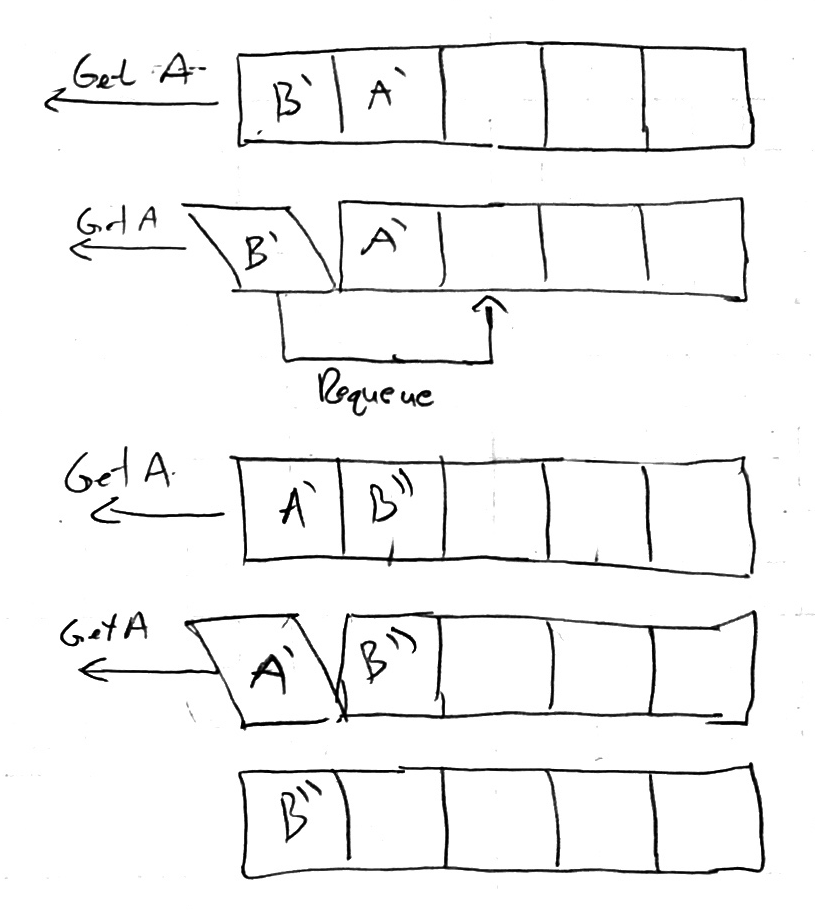 Get A
B' A'
Get A
B' A'
Requeue
Get A.
A' B''
Get A
A' B''
B''